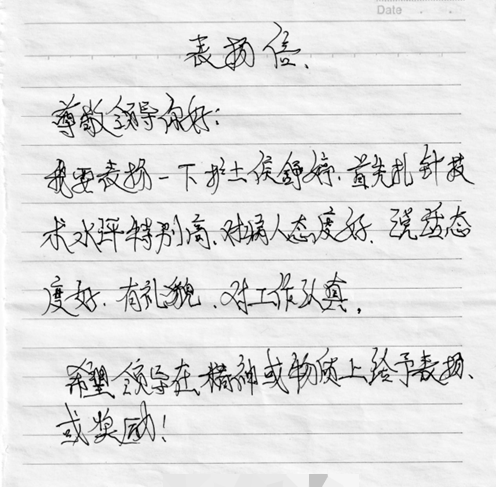 Date
表扬信.
尊敬领导你好:
我要表扬一下护士侯舒婷.首先扎针技
术水平特别高.对病人态度好.说话态
度好.有礼貌.对工作认真.
希望领导在精神或物质上给予表扬.
或奖励!